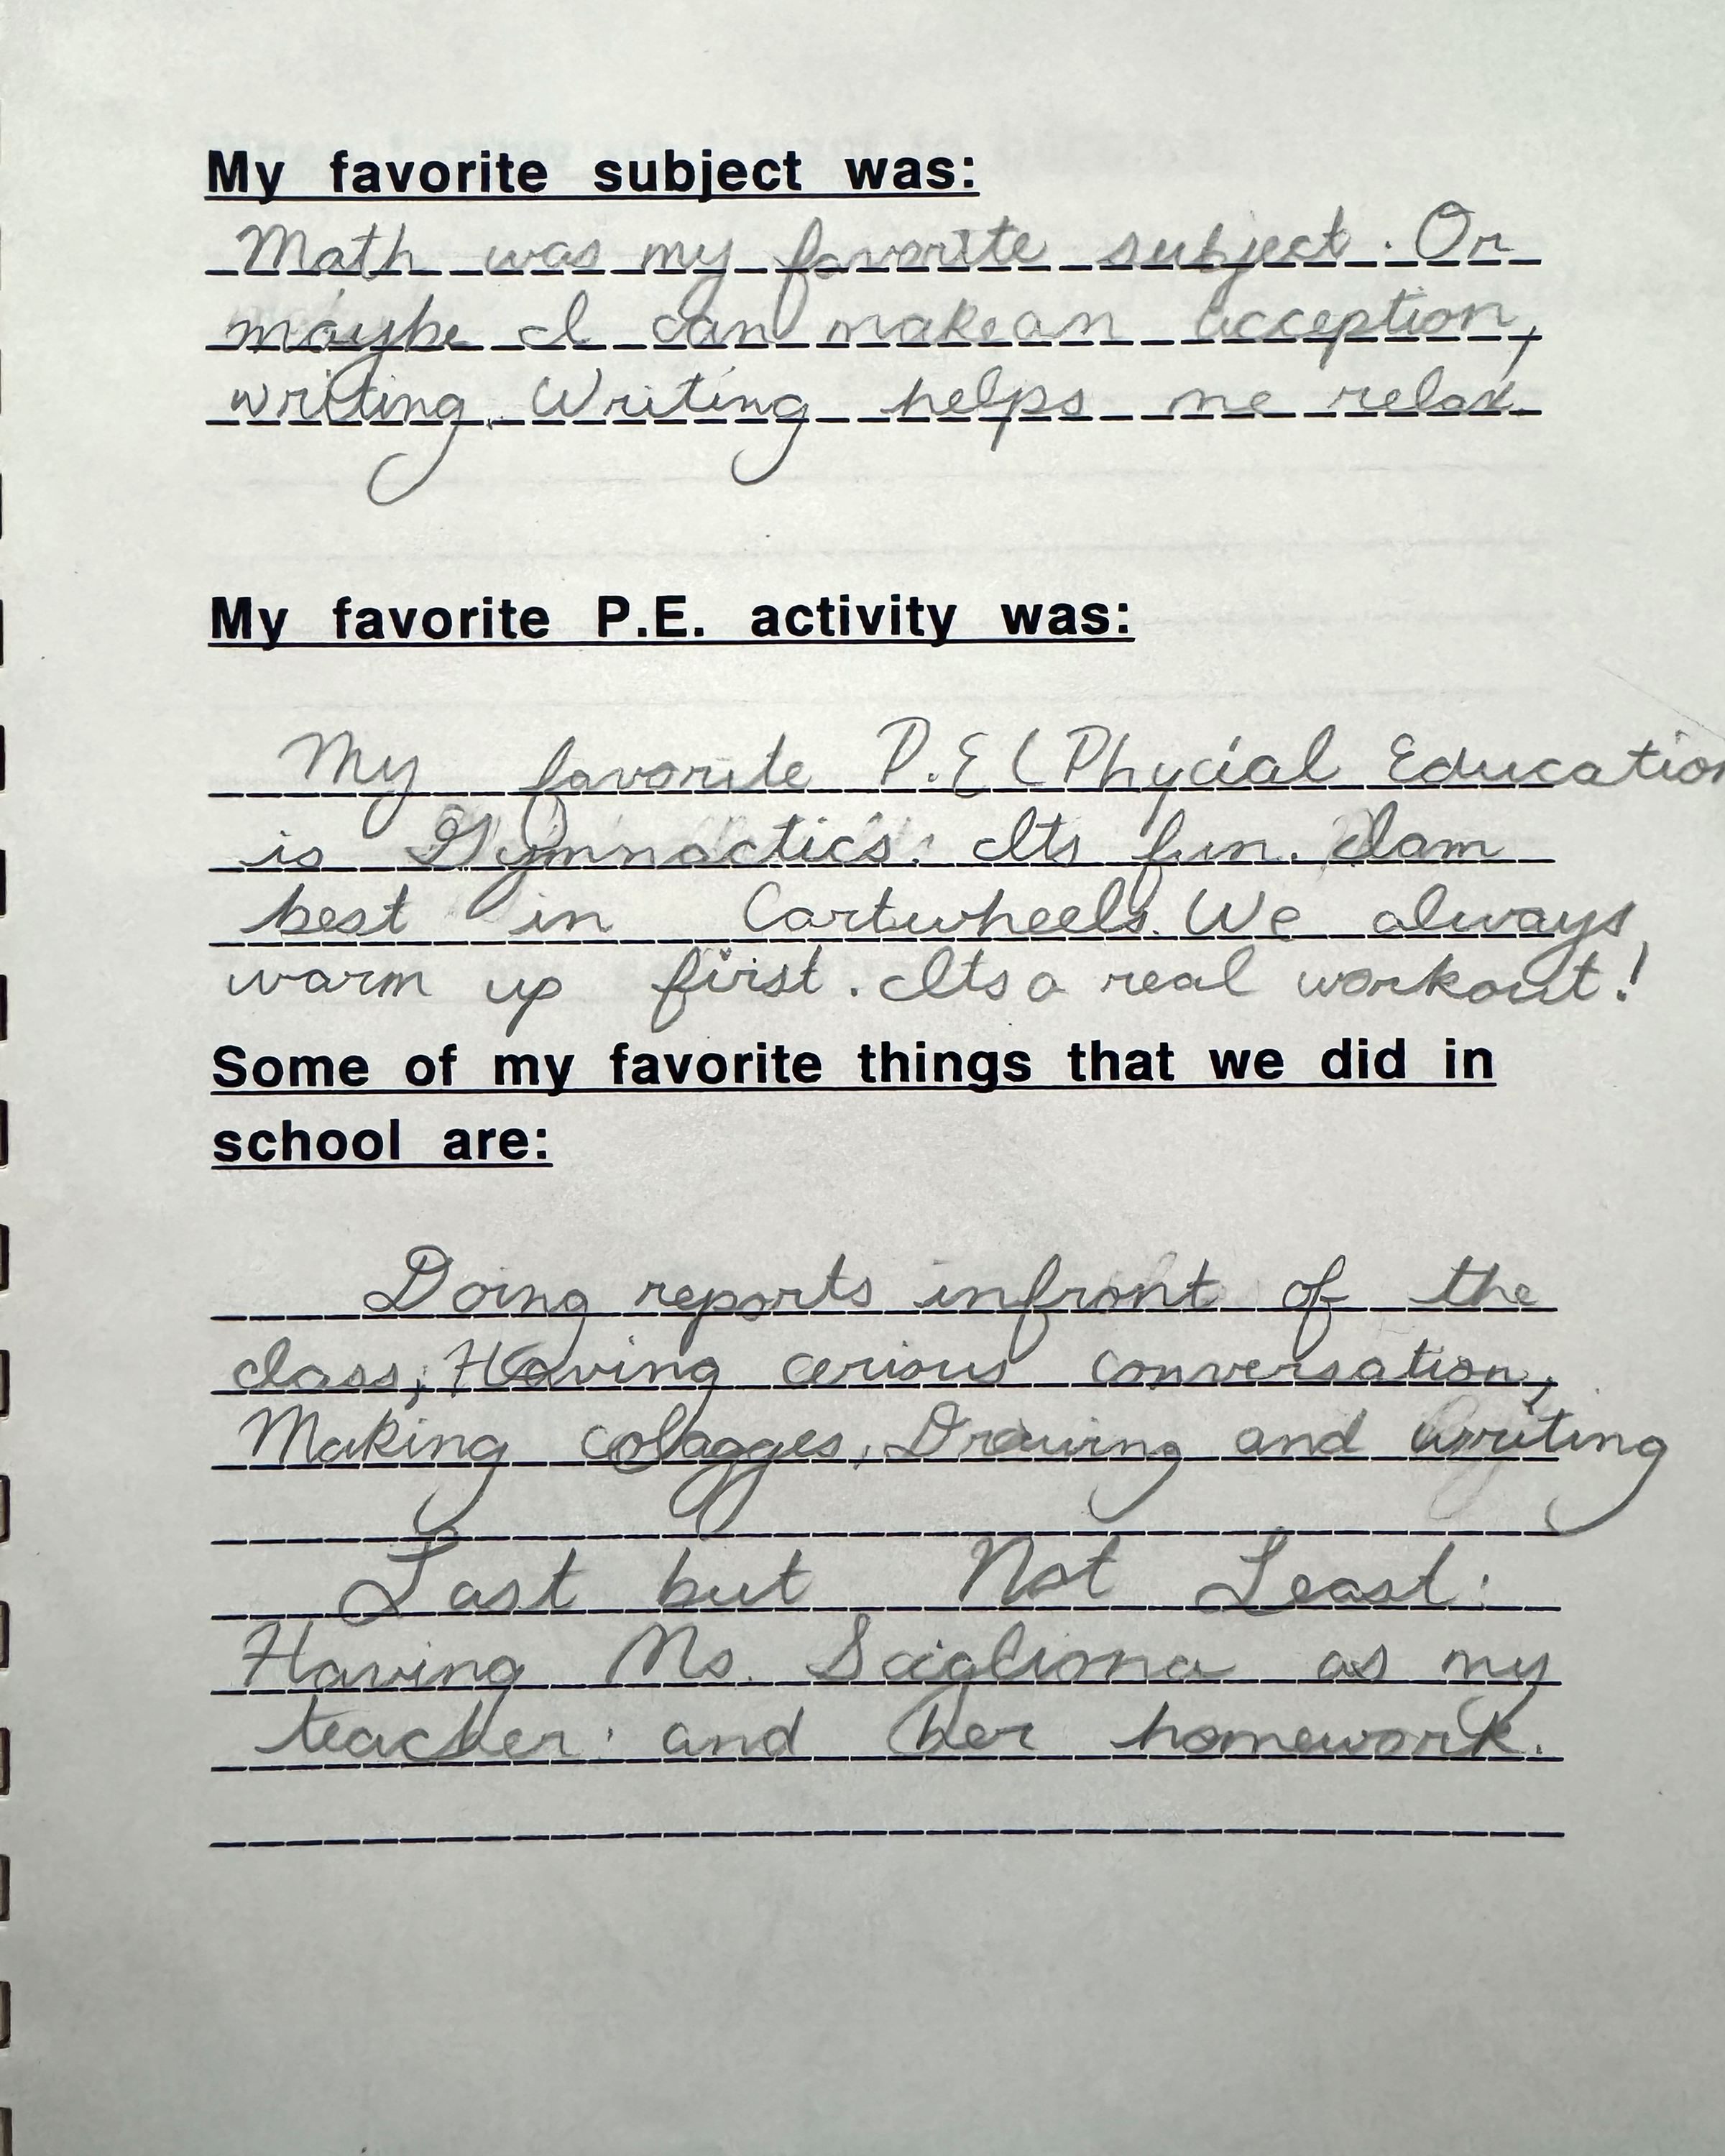 My favorite subject was:
Math was my favorite subject. Or
maybe I can make an acception,
writing. Writing helps me relax.
My favorite P.E. activity was:
My favorite P.E ( Phycial Education
is Gymnactics. Its fun. I am
best in Cartwheels. We always
warm up first. Its a real workout!
Some of my favorite things that we did in
school are:
Doing reports infront of the
class, Having cerious conversation,
Making colagges, Drawing and writing
Last but Not Least:
Having Ms. Scigliona as my
teacher. and her homework.